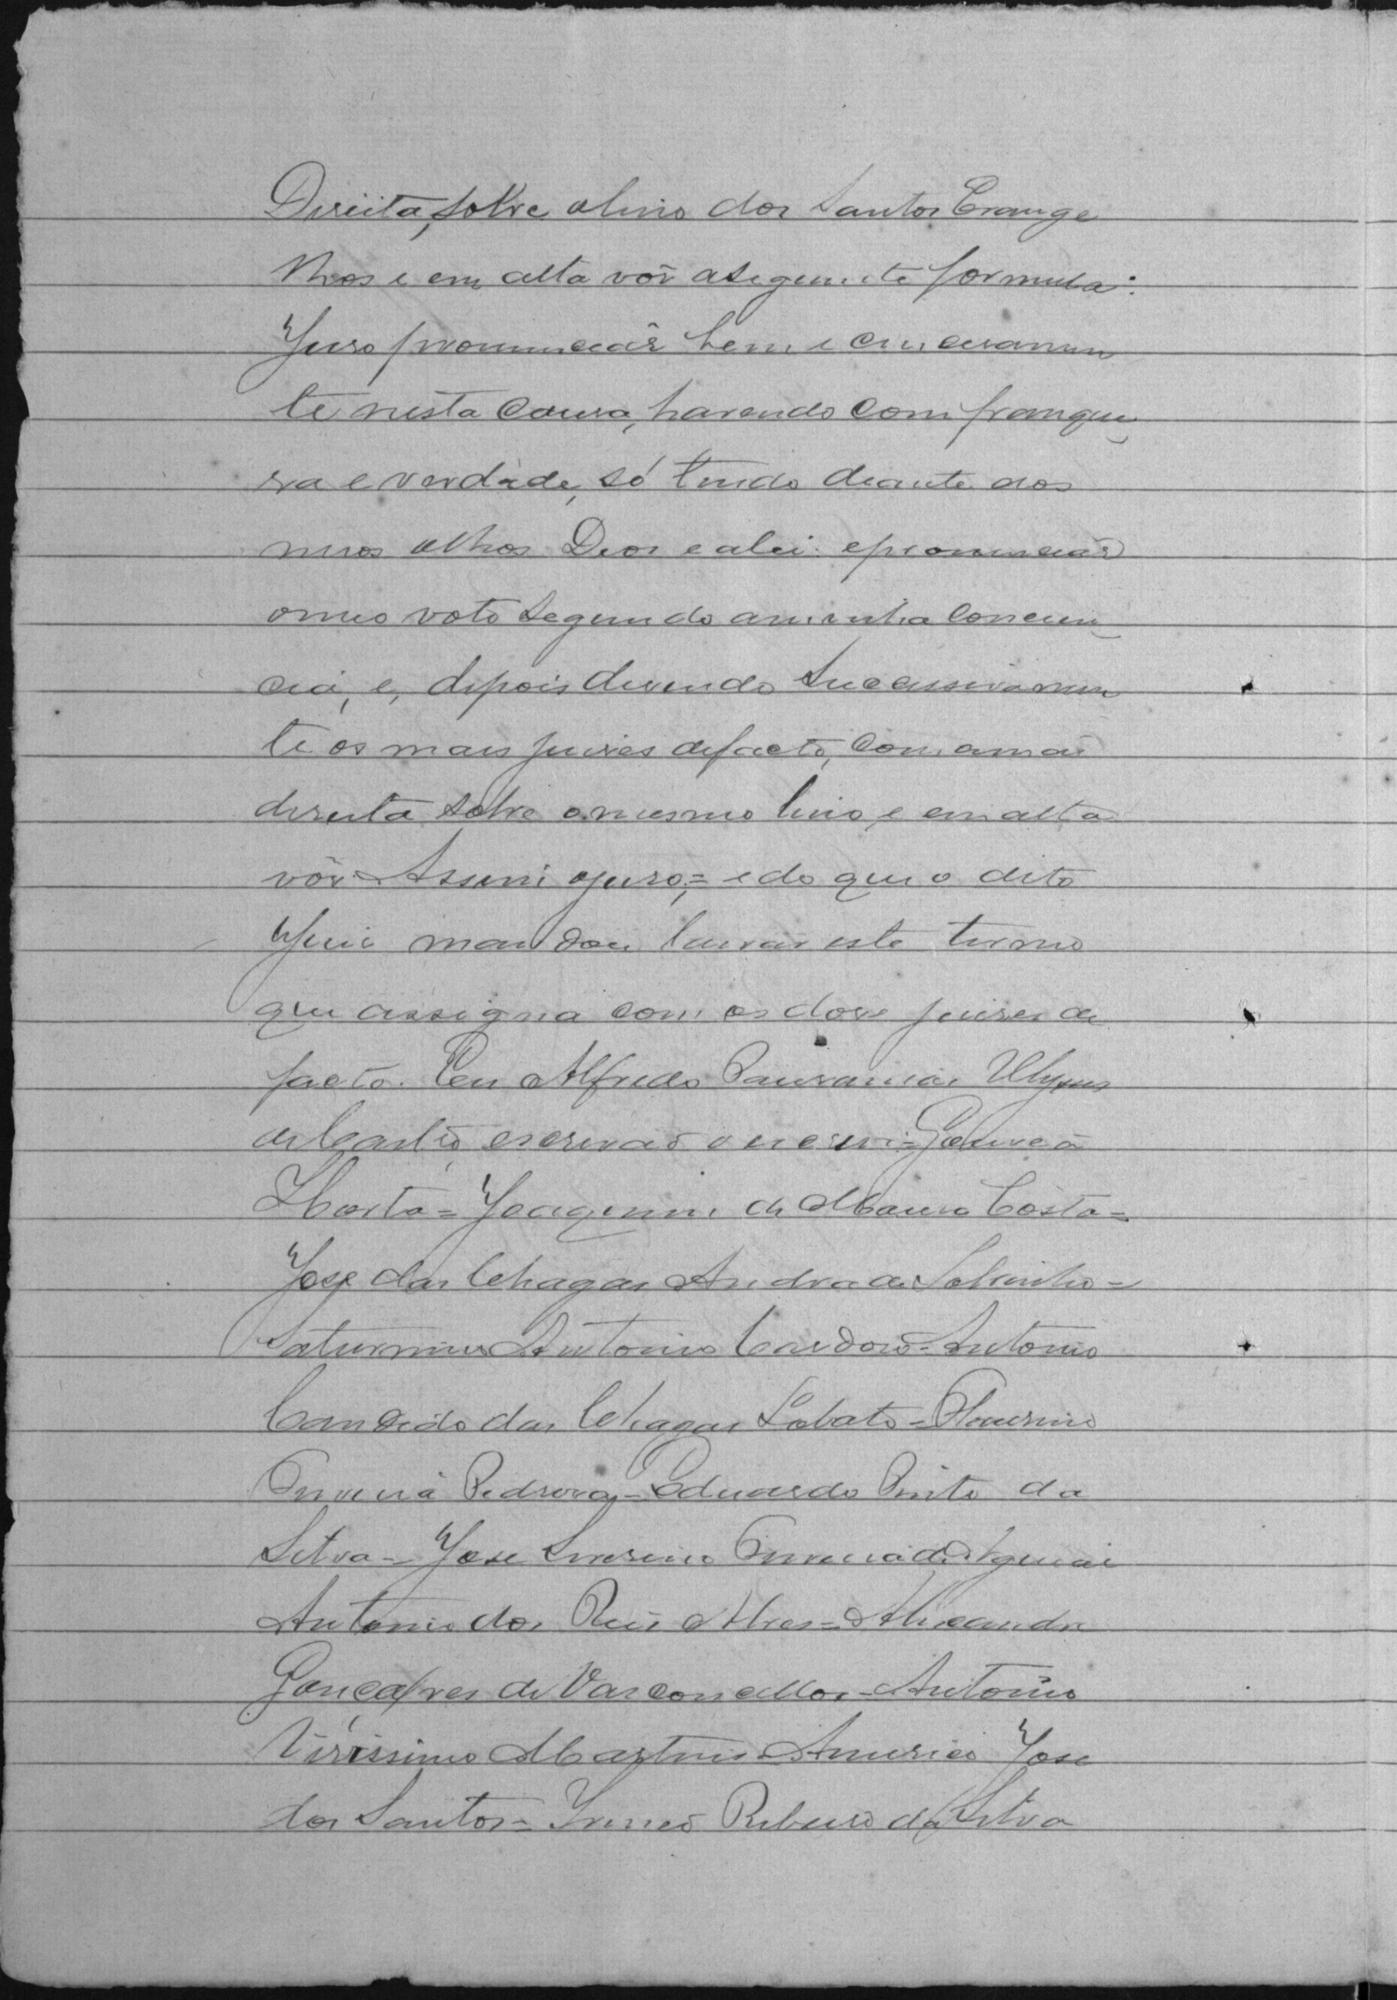 Direita, sobre o livro dos Santos Evange
lhos e em alta vôz a seguinte formula:
Juro pronunciár bem e cinceramen
te nesta causa, havendo com franque
za e verdade, só tendo deante dos
meos olhos Deos e a lei e pronunciár
o meo voto segundo a minha concien
cia, e, depois dizendo successivamen
te os mais juizes de facto, com a mão
direita sobre o mesmo livro, e em alta
vôz Assim o juro;= e do que o dito
Juiz mandou lavrar este termo
que assigna com os doze juizes de
facto. Eu Alfredo Pausanias Ulysses
de Castro, escrivão o escrevi= Gouvêa
Horta= Joaquim de Moura Costa=
José das Chagas Andrade Sobrinho=
Saturnino Antonio Cardoso= Antonio
Candido das Chagas Lobato=
Pedroza= Eduardo Pinto da
Silva= José Severino de Aguiar
Antonio dos Reis Alves= Alexandre
Gonçalves de Vasconcellos= Antonio
Virissimo Martins= Americo José
dos Santos= Irineo Ribeiro da Silva